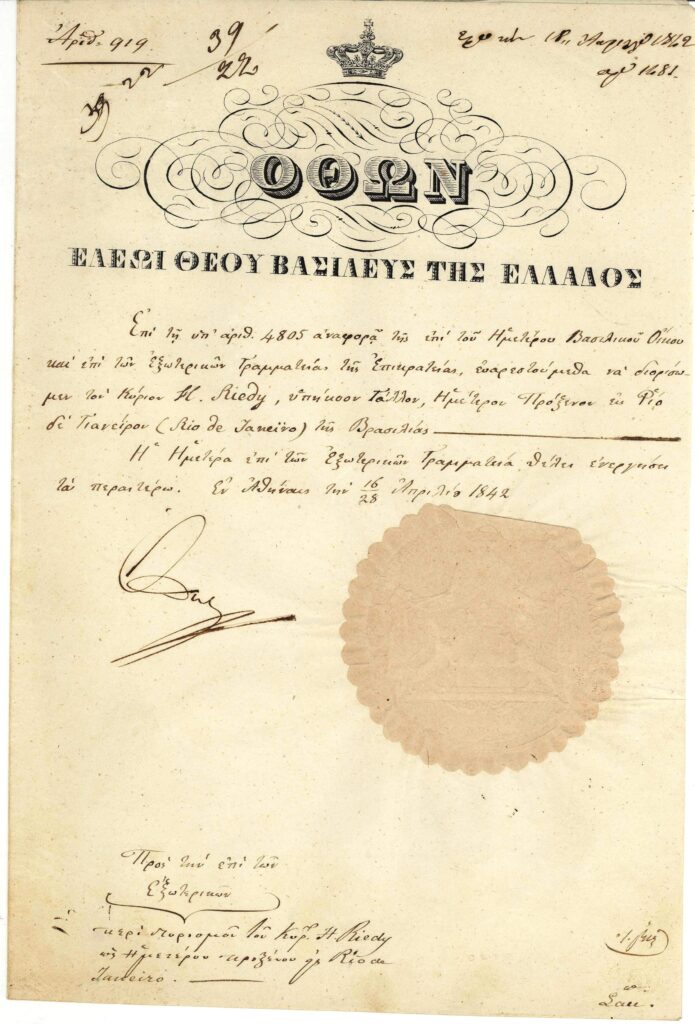 Ἀριθ. 919
39
22
39 22
1842
1481.
ΟΘΩΝ
ΕΛΕΩΙ ΘΕΟΥ ΒΑΣΙΛΕΥΣ ΤΗΣ ΕΛΛΑΔΟΣ
Ἐπὶ τῇ ὑπ' ἀριθ. 4805 ἀναφορᾷ τῆς ἐπὶ τοῦ Ἡμετέρου Βασιλικοῦ Οἴκου
καὶ ἐπὶ τῶν Ἐξωτερικῶν Γραμματείας τῆς Ἐπικρατείας, εὐαρεστούμεθα νὰ διορίσω-
μεν τὸν Κύριον H. Riedy, ὑπήκοον Γάλλον, Ἡμέτερον Πρόξενον εἰς Ῥίο
δὲ Ἰανεῖρον (Rio de Janeiro) τῆς Βρασιλίας
Ἡ Ἡμετέρα ἐπὶ τῶν Ἐξωτερικῶν Γραμματεία θέλει ἐνεργήσει
τὰ περαιτέρω. Ἐν Ἀθήναις τὴν 16/28 Ἀπριλίου 1842
Πρὸς τὴν ἐπὶ τῶν
Ἐξωτερικῶν
περὶ διορισμοῦ τοῦ Κυρ. H Riedy
ὡς Ἡμετέρου προξένου εἰς Rio de
Janeiro.